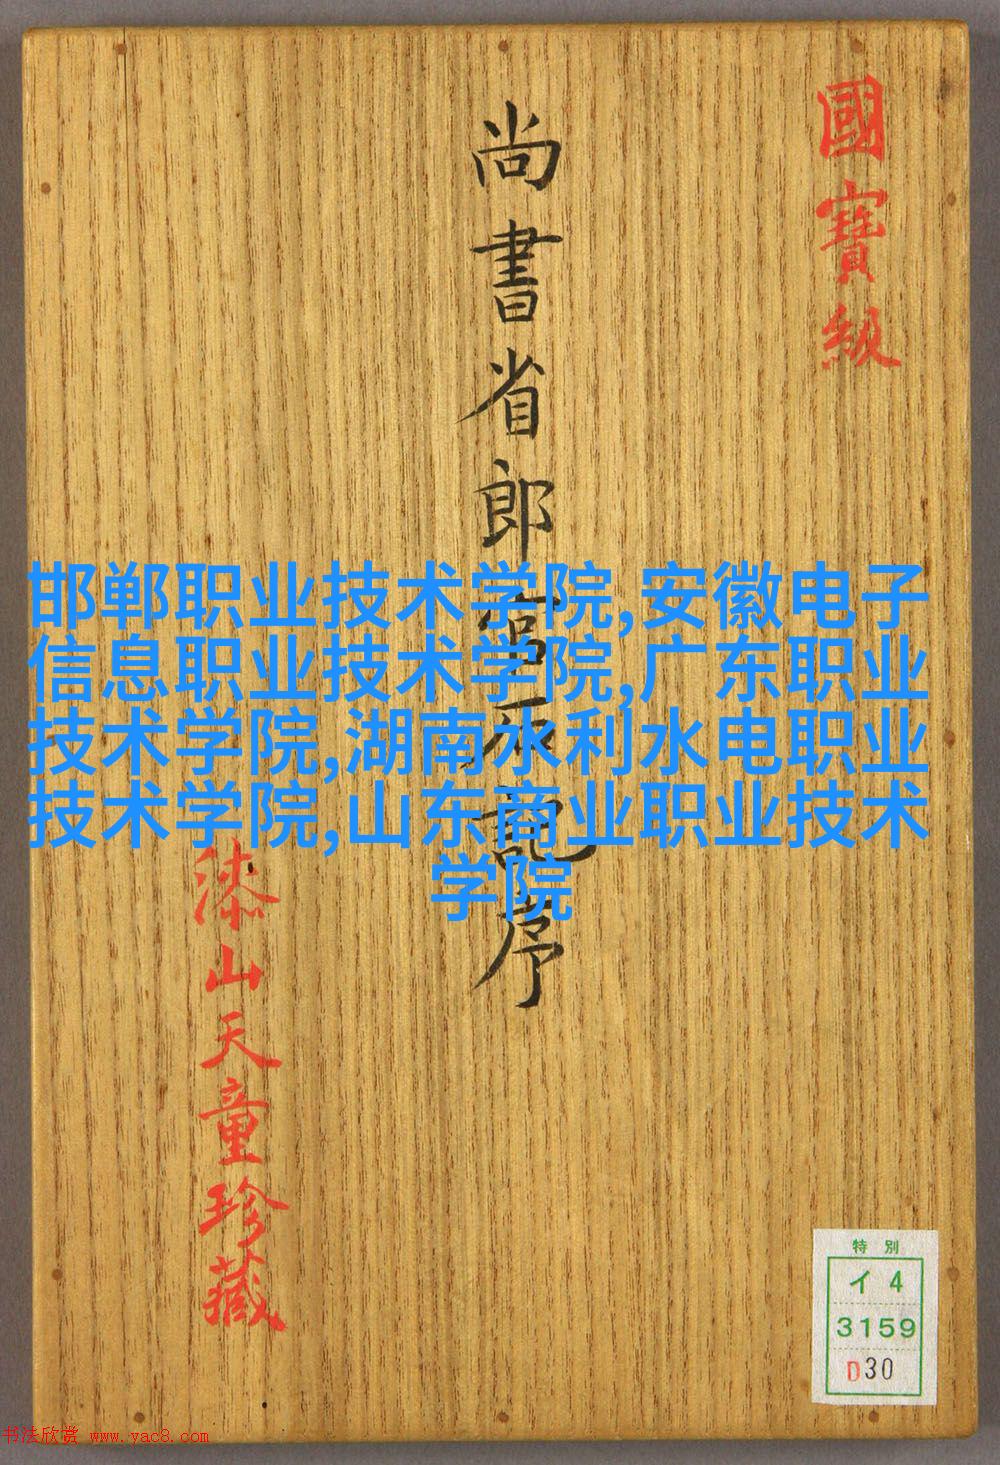 國寶級
尚書省郎官石記序
漆山天童珍藏
邯郸职业技术学院,安徽电子
信息职业技术学院,广东职业
技术学院,湖南水利水电职业
技术学院,山东商业职业技术
学院
特別
イ4
3159
D30
书法欣赏 www.yac8.com